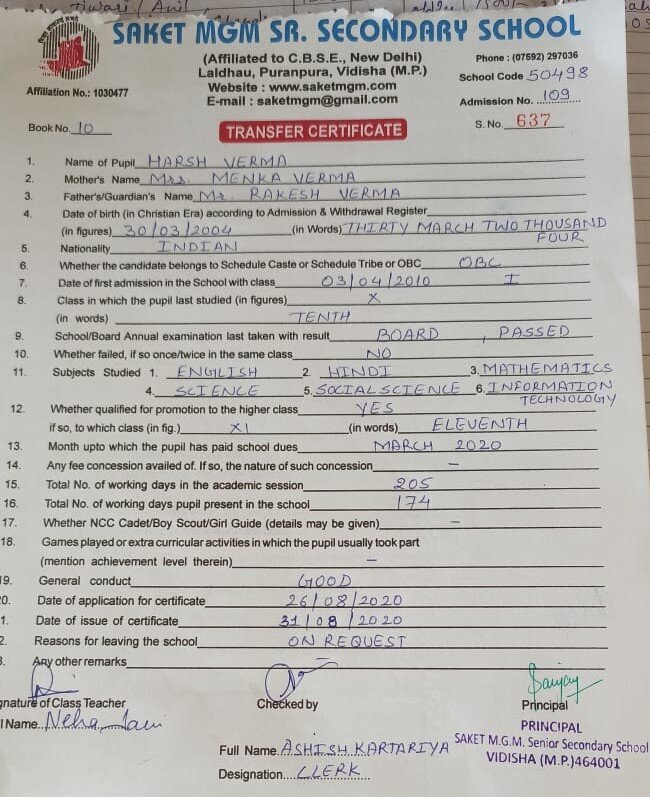 Tiwari / Anil
SAKET MGM SR. SECONDARY SCHOOL
(Affiliated to C.B.S.E., New Delhi)
Laldhau, Puranpura, Vidisha (M.P.)
Website : www.saketmgm.com
E-mail : saketmgm@gmail.com
Phone : (07592) 297036
School Code 50498
Affiliation No.: 1030477
Admission No. 109
Book No. 10
TRANSFER CERTIFICATE
S. No. 637
1. Name of Pupil HARSH VERMA
2. Mother's Name Mrs. MENKA VERMA
3. Father's/Guardian's Name Mr. RAKESH VERMA
4. Date of birth (in Christian Era) according to Admission & Withdrawal Register
(in figures) 30/03/2004 (in Words) THIRTY MARCH TWO THOUSAND
FOUR
5. Nationality INDIAN
6. Whether the candidate belongs to Schedule Caste or Schedule Tribe or OBC OBC
7. Date of first admission in the School with class 03/04/2010 I
8. Class in which the pupil last studied (in figures) X
(in words) TENTH
9. School/Board Annual examination last taken with result BOARD , PASSED
10. Whether failed, if so once/twice in the same class NO
11. Subjects Studied 1. ENGLISH 2. HINDI 3. MATHEMATICS
4. SCIENCE 5. SOCIAL SCIENCE 6. INFORMATION
TECHNOLOGY
12. Whether qualified for promotion to the higher class YES
if so, to which class (in fig.) XI (in words) ELEVENTH
13. Month upto which the pupil has paid school dues MARCH 2020
14. Any fee concession availed of. If so, the nature of such concession –
15. Total No. of working days in the academic session 205
16. Total No. of working days pupil present in the school 174
17. Whether NCC Cadet/Boy Scout/Girl Guide (details may be given) –
18. Games played or extra curricular activities in which the pupil usually took part
(mention achievement level therein) –
19. General conduct GOOD
20. Date of application for certificate 26/08/2020
1. Date of issue of certificate 31/08/2020
2. Reasons for leaving the school ON REQUEST
3. Any other remarks –
gnature of Class Teacher
Checked by
Sanjay
Principal
l Name. Neha Jain
PRINCIPAL
SAKET M.G.M. Senior Secondary School
VIDISHA (M.P.)464001
Full Name. ASHISH KARTARIYA
Designation. CLERK